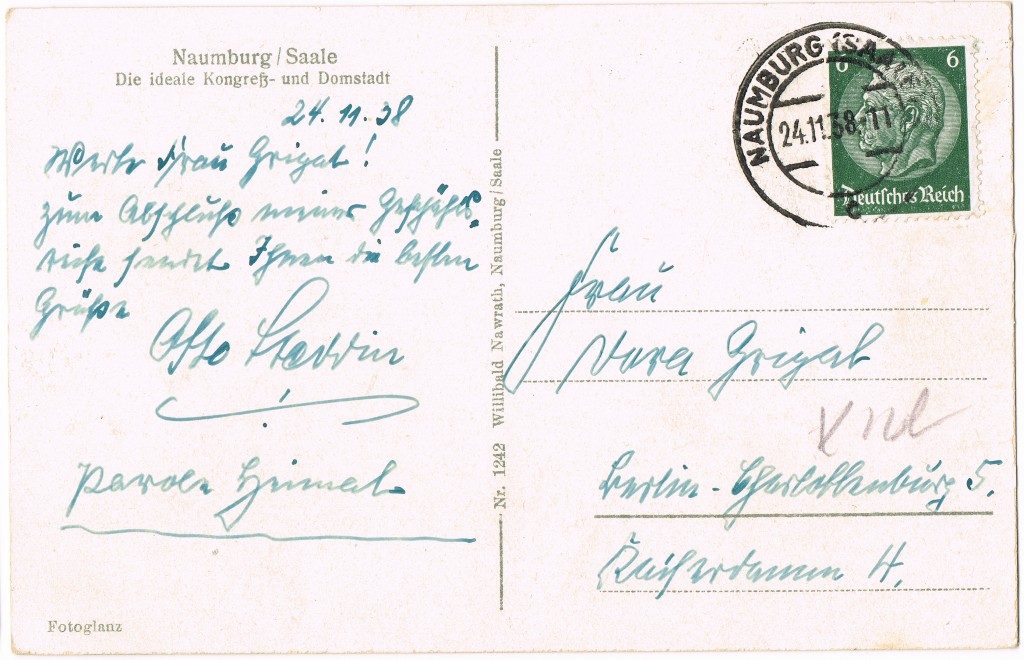 Naumburg/Saale
Die ideale Kongreß- und Domstadt
24. 11. 38
Werte Frau Grigat!
zum Abschluß meiner Geschäfts-
reise sendet Ihnen die besten
Grüße
Otto
Parole Heimat
Fotoglanz
Nr. 1242 Willibald Nawrath, Naumburg/Saale
NAUMBURG (SAALE)
24.11.38-11
6 6
Deutsches Reich
Frau
Dora Grigat
Berlin-Charlottenburg 5.
Kaiserdamm 4.